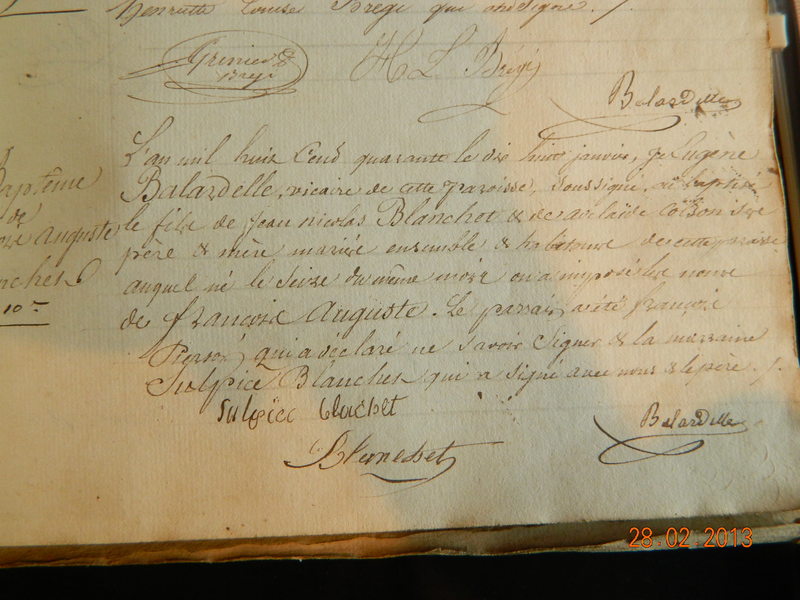 henriette Louise Bregi qui ont signé ./.
Grenier
Bregi
H L Brégi
Balardelle
Baptême
de
Auguste
Blanchet
10.
L'an mil huit Cent quarante le dix huit janvier, je Eugène
Balardelle, vicaire de cette paroisse, soussigné, ai baptisé
le fils de jean nicolas Blanchet & de adelaïde
père & mère mariés ensemble & habitants de cette paroisse
auquel né le seize du même mois on a imposé les noms
de françois Auguste. Le parrain a été françois
Pierson, qui a déclaré ne savoir signer & la marraine
Sulpice Blanchet qui a signé avec nous & le père ./.
Sulpice blachet
Balardelle
Blanchet
28.02.2013